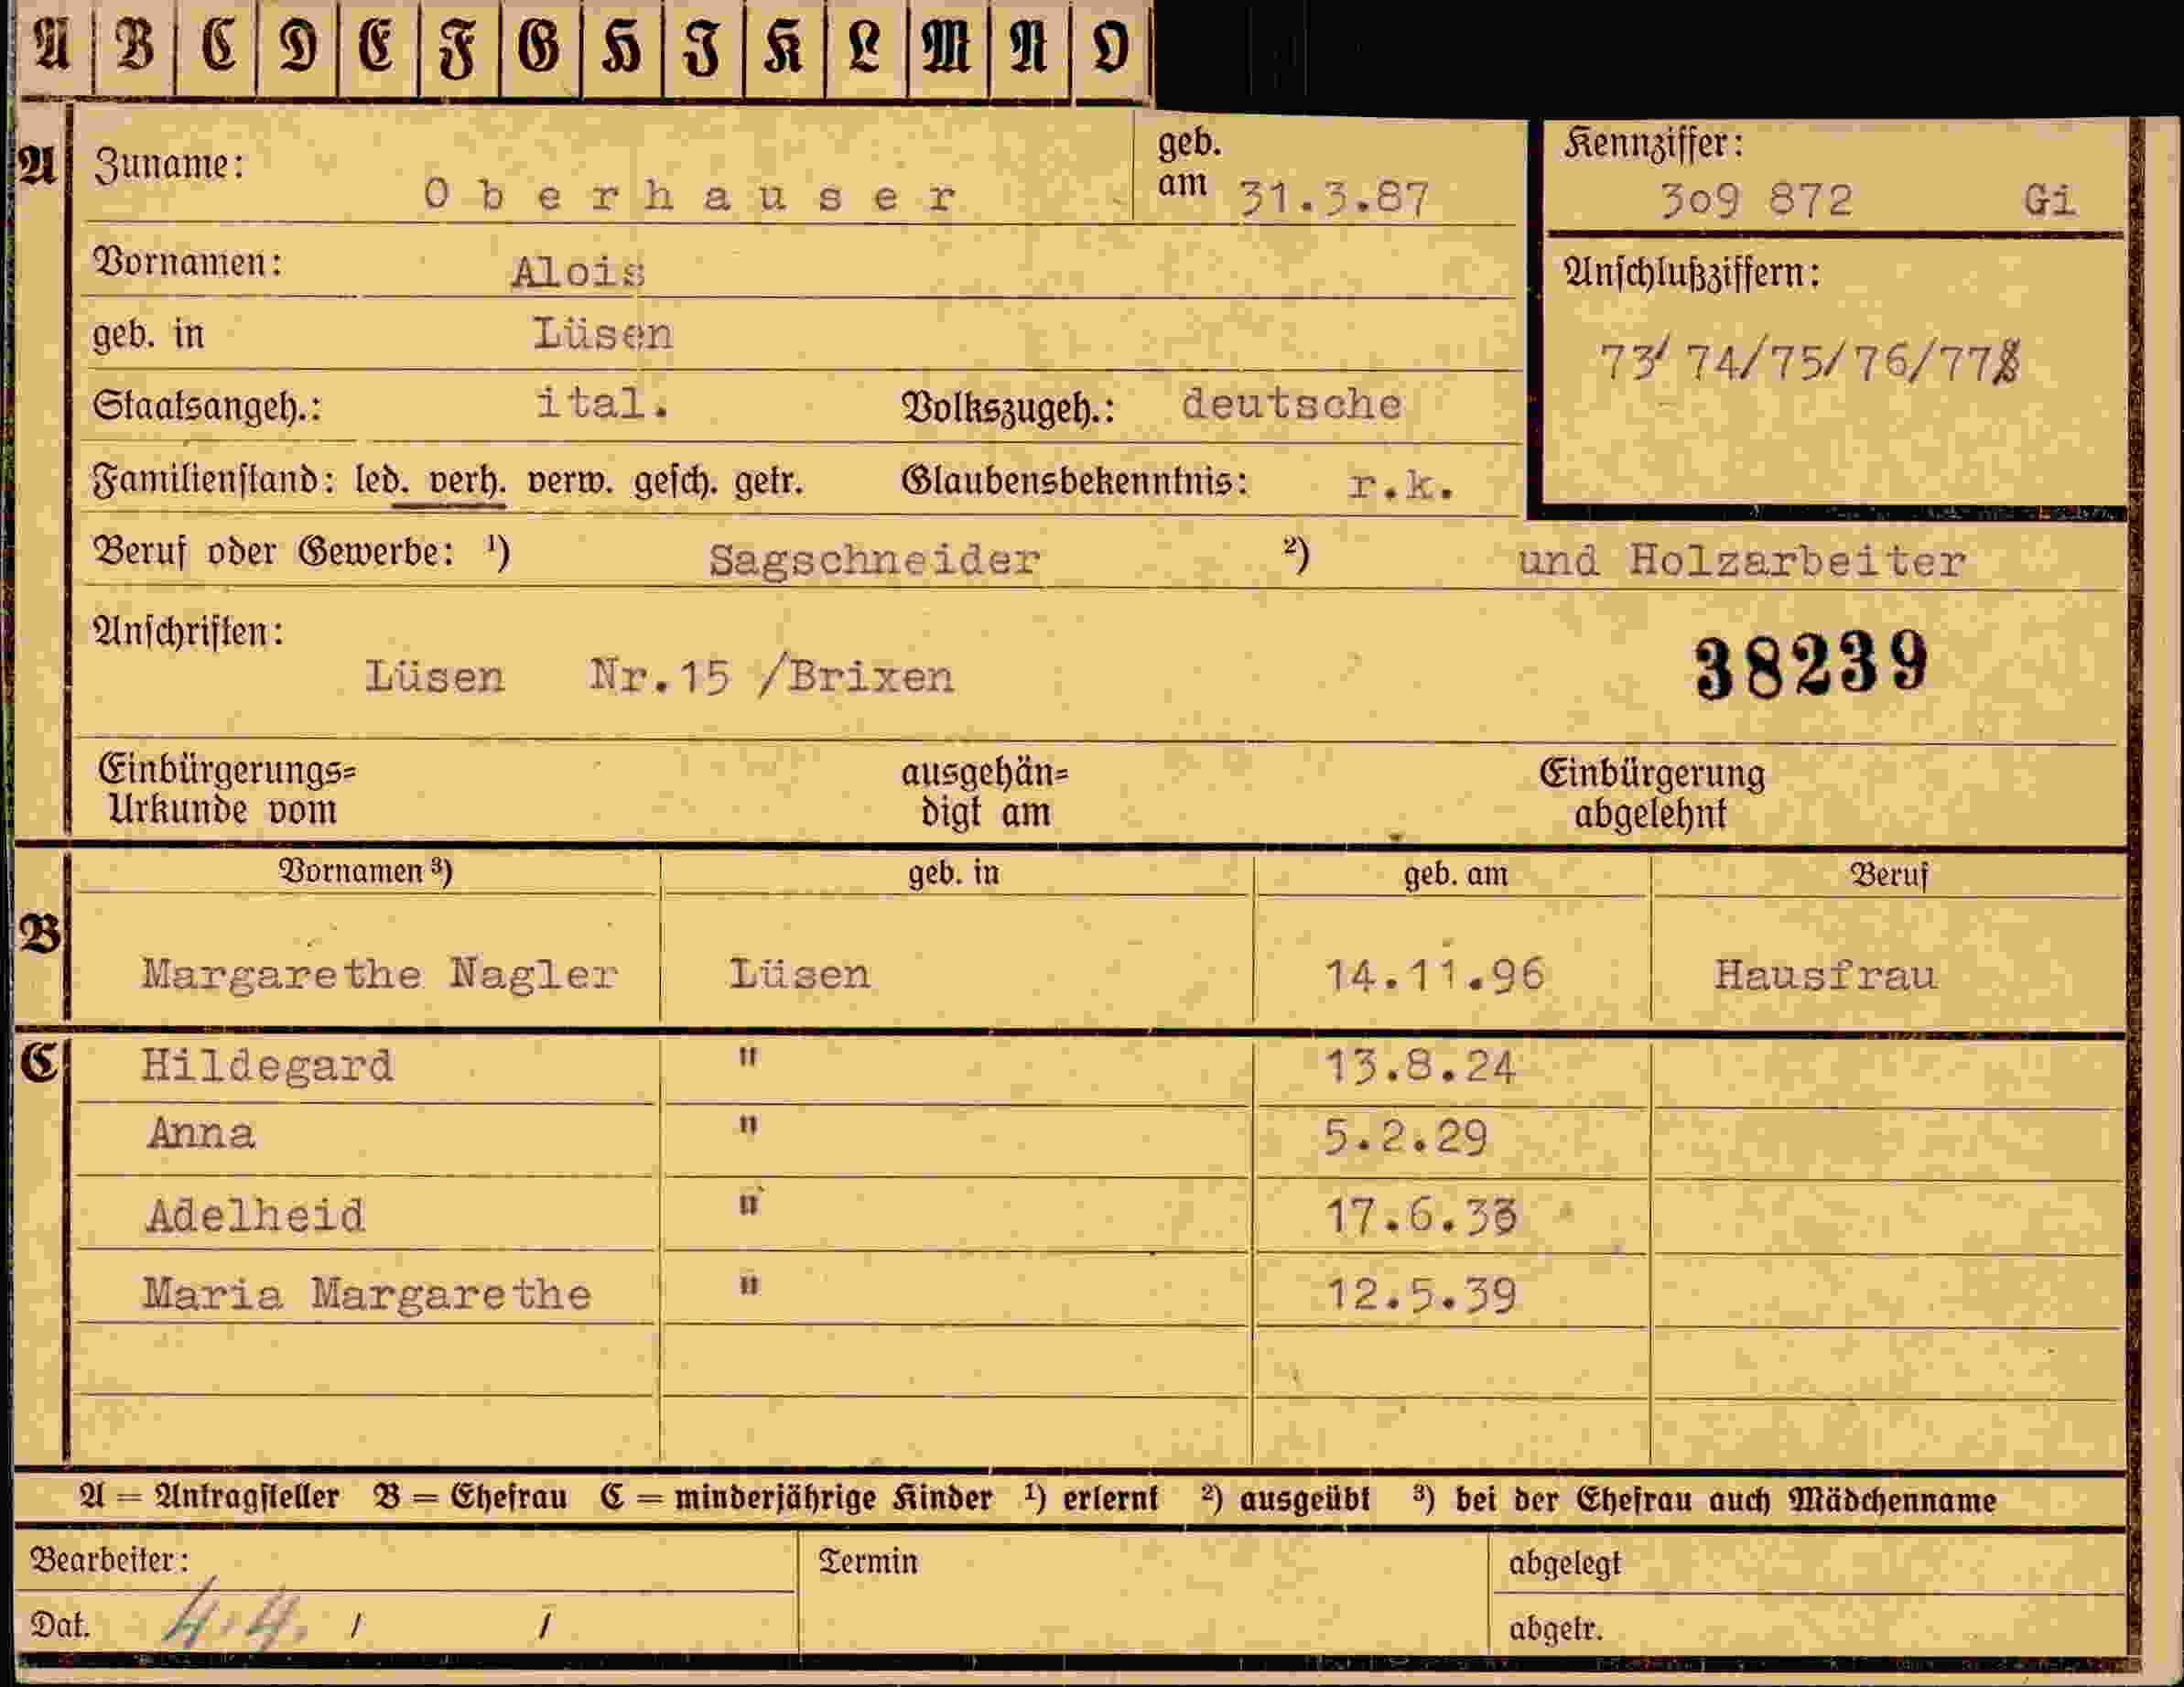 A B C D E F G H I K L M N O
A Zuname: Oberhauser geb. am 31.3.87
Kennziffer: 309 872 Gi
Vornamen: Alois
Anschlußziffern:
geb. in Lüsen
73/ 74/75/76/77
Staatsangeh.: ital. Volkszugeh.: deutsche
Familienstand: led. verh. verw. gesch. getr. Glaubensbekenntnis: r.k.
Beruf oder Gewerbe: ¹) Sagschneider ²) und Holzarbeiter
Anschriften:
Lüsen Nr.15 /Brixen 38239
Einbürgerungs= ausgehän= Einbürgerung
Urkunde vom digt am abgelehnt
Vornamen ³) geb. in geb. am Beruf
B
Margarethe Nagler Lüsen 14.11.96 Hausfrau
C Hildegard " 13.8.24
Anna " 5.2.29
Adelheid " 17.6.33
Maria Margarethe " 12.5.39
A = Antragsteller B = Ehefrau C = minderjährige Kinder ¹) erlernt ²) ausgeübt ³) bei der Ehefrau auch Mädchenname
Bearbeiter: Termin abgelegt
Dat. 4.4. / / abgetr.